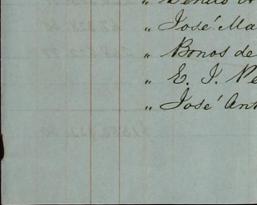 " José Ma
" Bonos de
" E. J. Pe
" José Ant